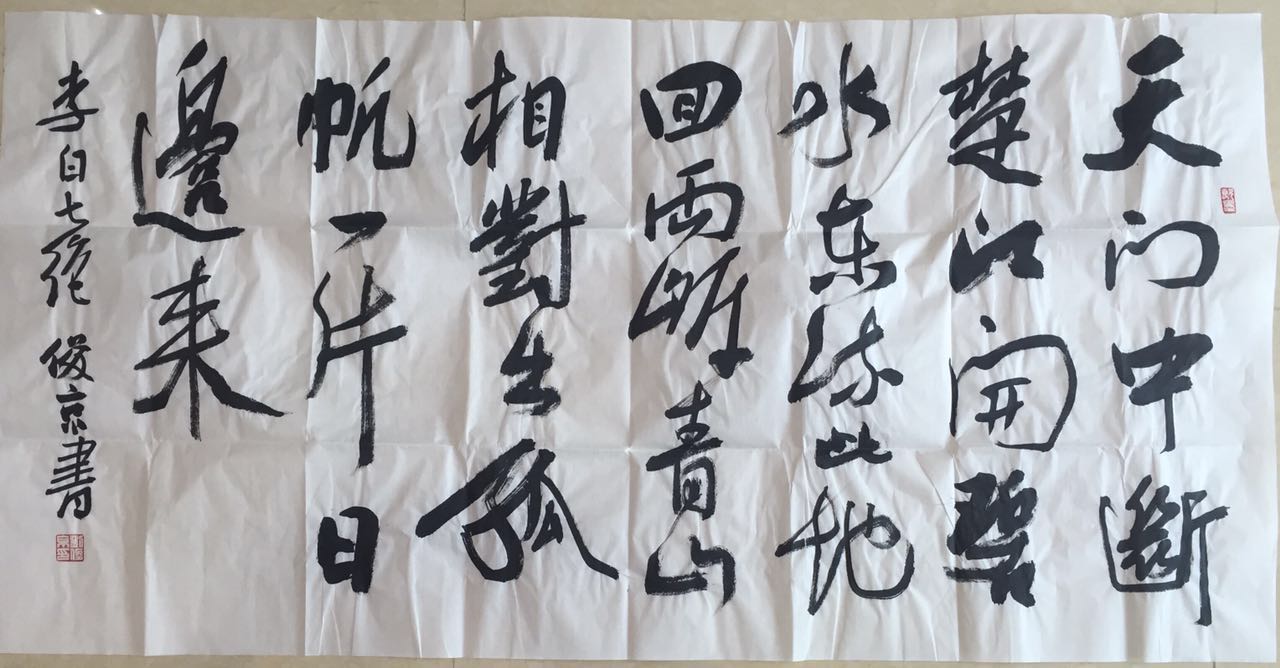 天门中斷
楚江開碧
水东流此地
回両岸青山
相對出孤
帆一片日
邊来
李白七绝 俊京書